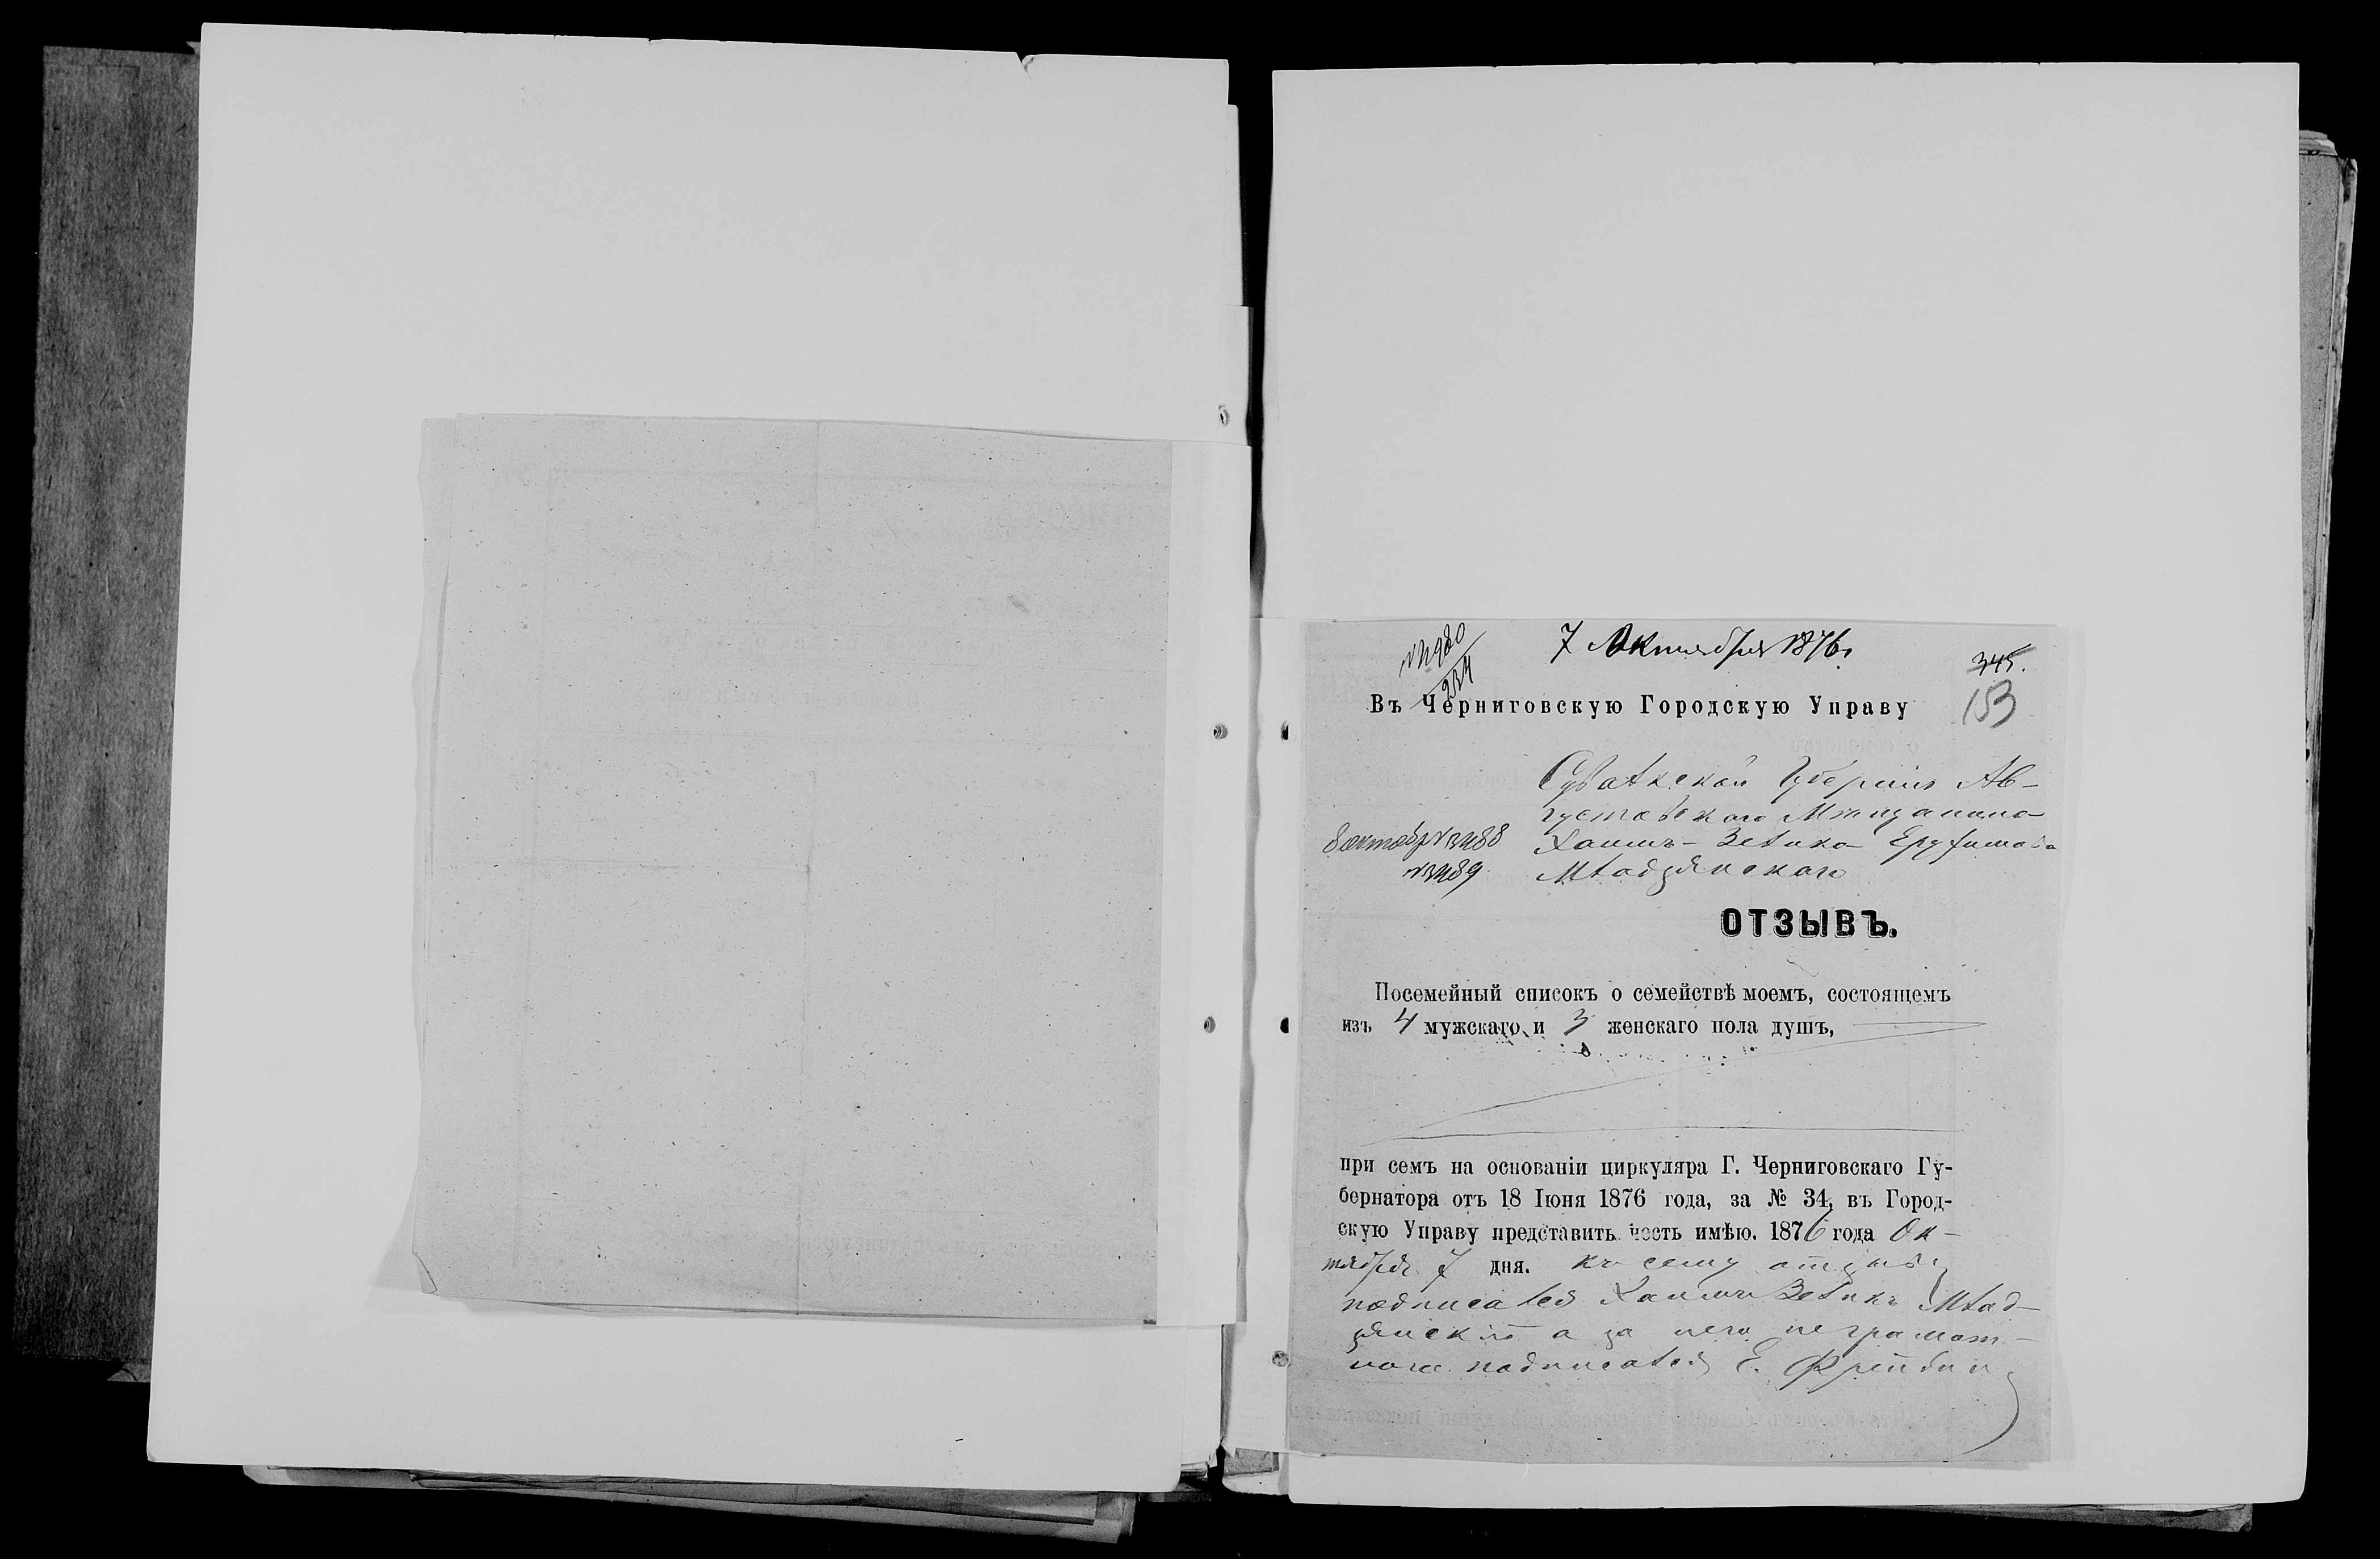 7 Октября 1876 г.
345.
153
Въ Черниговскую Городскую Управу
Сувалкской Губернии Ав-
густовскаго Мѣщанина
Хаимъ-Зелика
8 октябр №3488
№3489
Младзянскаго
ОТЗЫВЪ.
Посемейный списокъ о семействѣ моемъ, состоящемъ
изъ 4 мужскаго и 3 женскаго пола душъ,
при семъ на основаніи циркуляра Г. Черниговскаго Гу-
бернатора отъ 18 Іюня 1876 года, за № 34, въ Город-
скую Управу представить честь имѣю. 1876 года Ок-
тября 7 дня. Къ сему отзыву
подписался Хаимъ Зеликъ Млад-
зянскій а за него неграмот-
наго подписался Е.